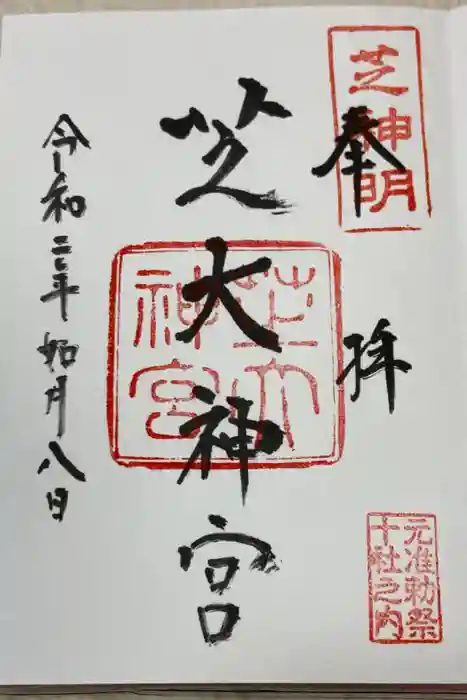 芝神明
奉拝
芝大神宮
芝大神宮
令和二年如月八日
元准勅祭
十社之内